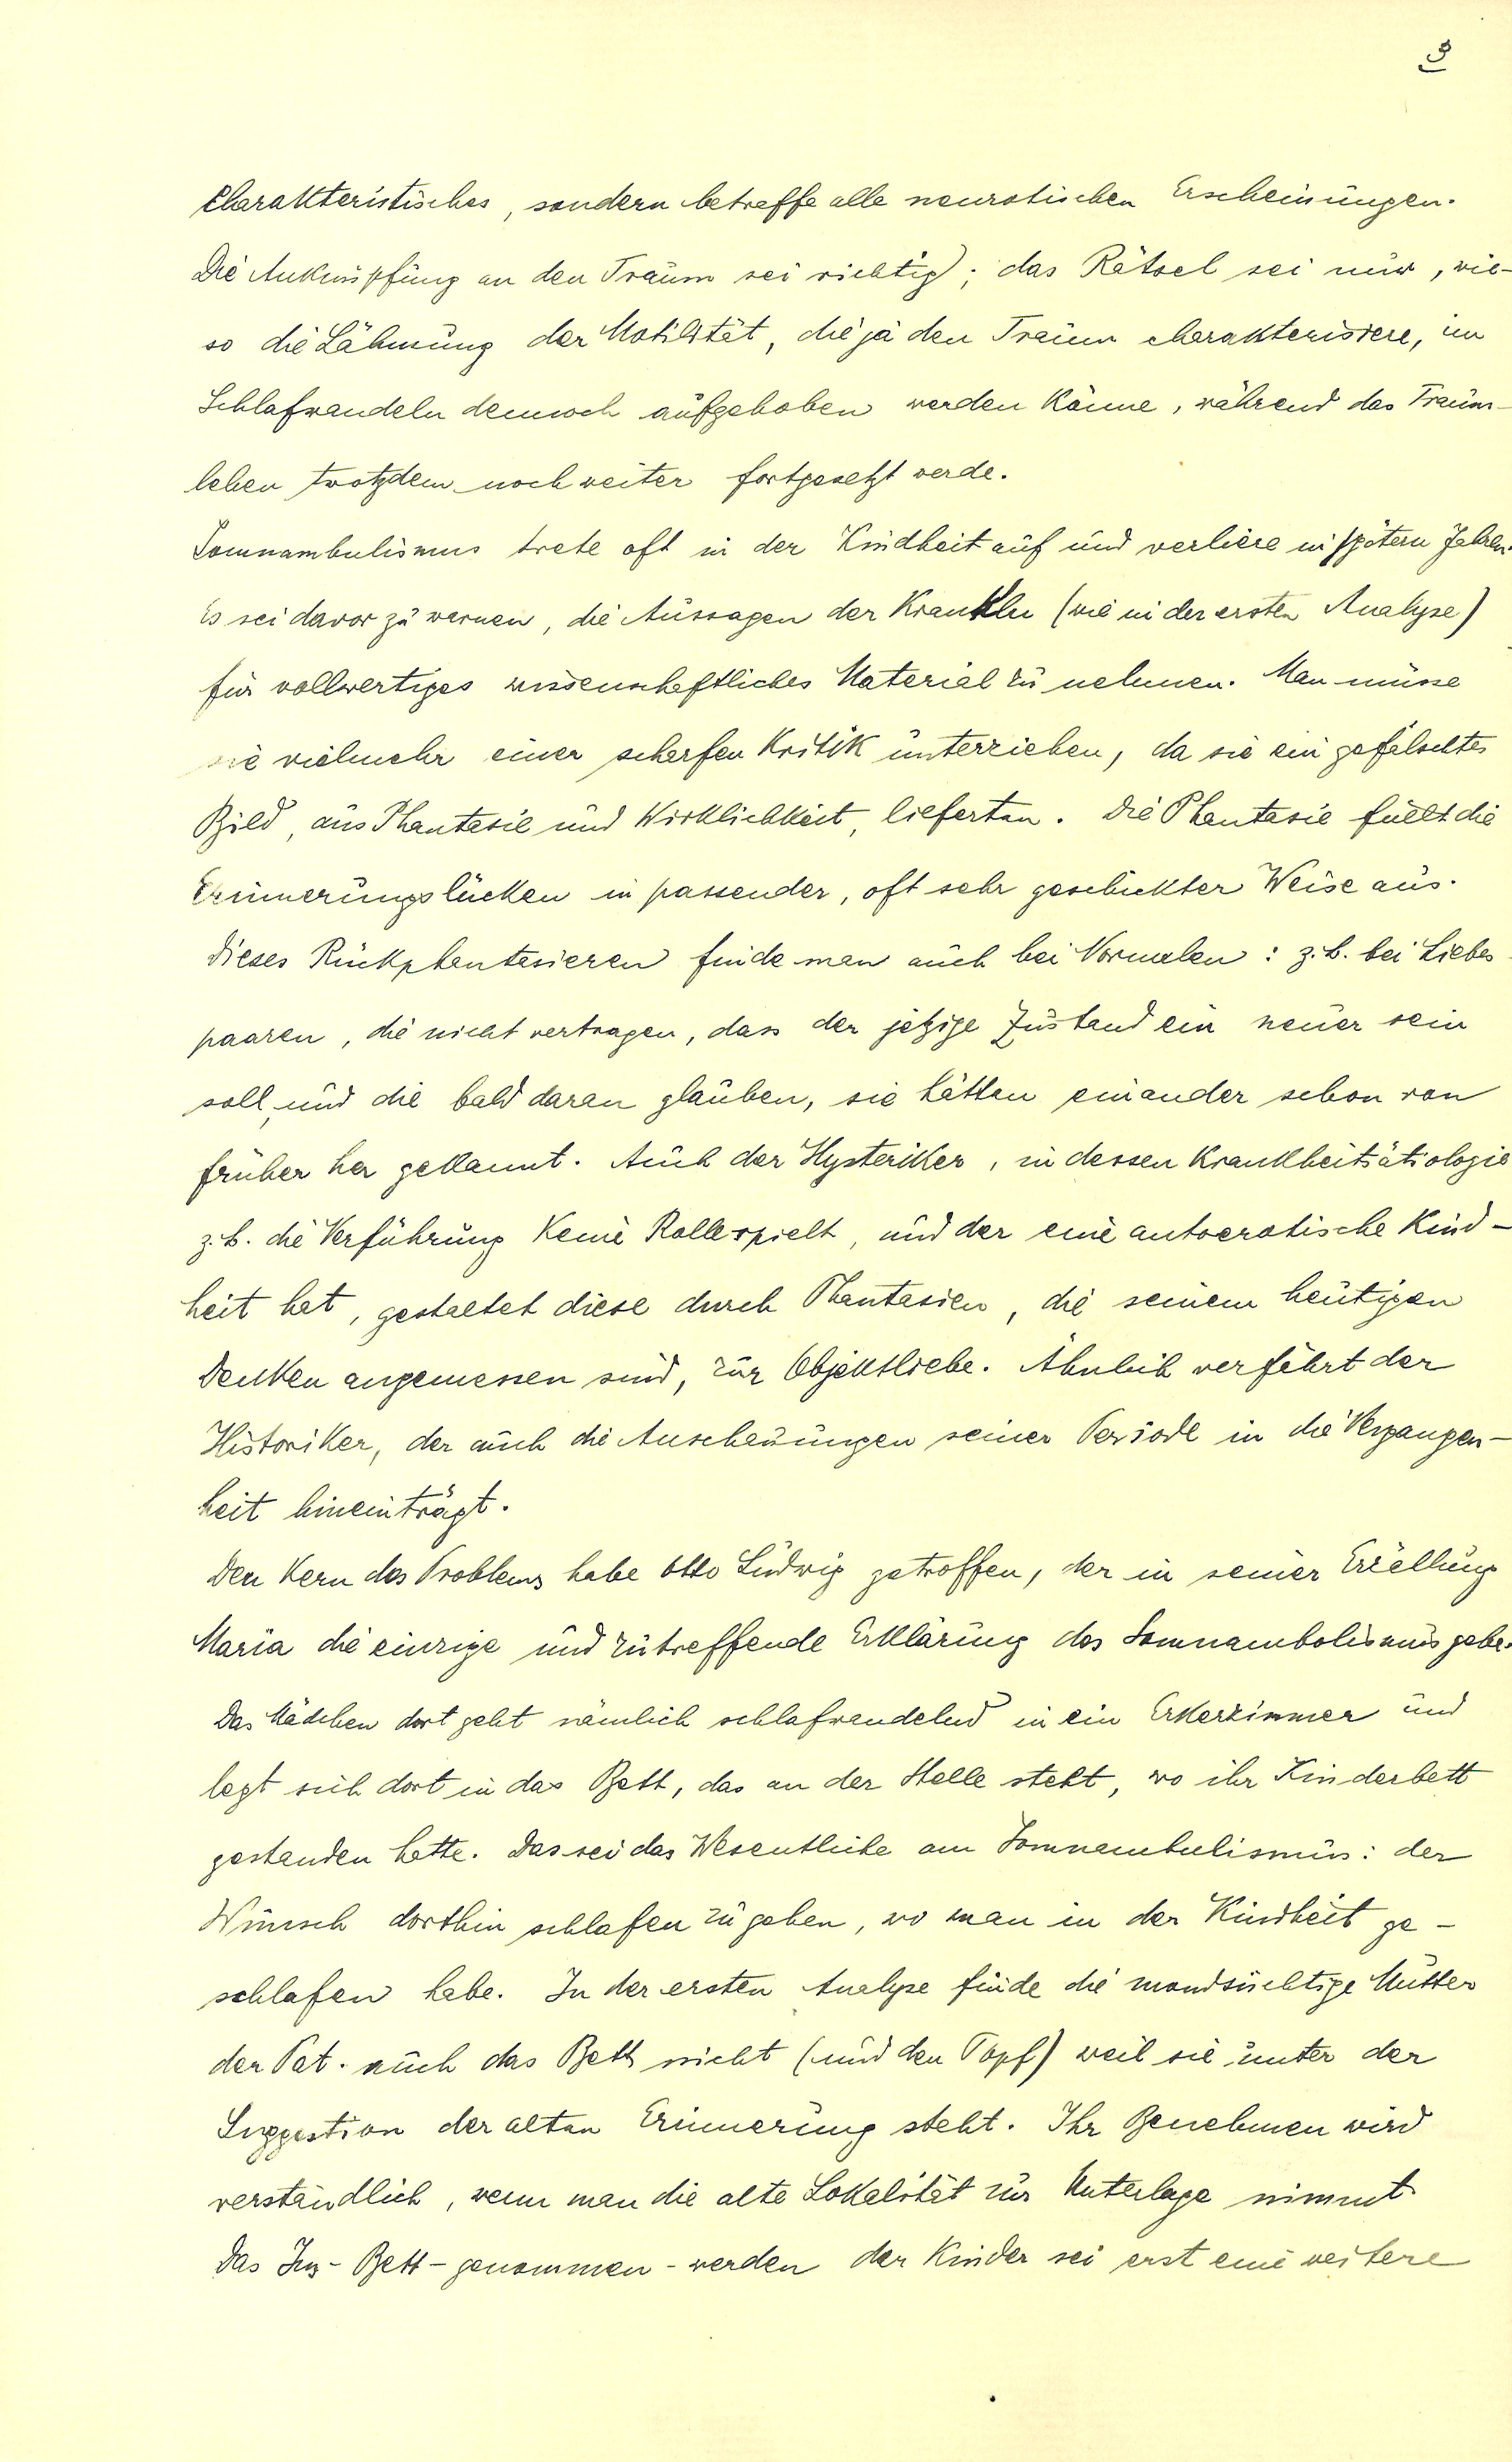 3
Charakteristisches, sondern betreffe alle neurotischen Erscheinungen.
Die Anknüpfung an den Traum sei richtig; das Rätsel sei nur, wie-
so die Lähmung der Motilität, die ja den Traum charakterisiere, im
Schlafwandeln dennoch aufgehoben werden könne, während das Traum-
leben trotzdem noch weiter fortgesetzt werde.
Somnambulismus trete oft in der Kindheit auf und verliere in spätern Jahren.
Es sei davor zu warnen, die Aussagen der Kranken (wie in der ersten Analyse)
für vollwertiges wissenschaftliches Material zu nehmen. Man müsse
sie vielmehr einer scharfen Kritik unterziehen, da sie ein gefälschtes
Bild, aus Phantasie und Wirklichkeit, lieferten. Die Phantasie füllt die
Erinnerungslücken in passender, oft sehr geschickter Weise aus.
Dieses Rückphantasieren finde man auch bei Normalen: z.b. bei Liebes-
paaren, die nicht vertragen, dass der jetzige Zustand ein neuer sein
soll, und die bald daran glauben, sie hätten einander schon von
früher her gekannt. Auch der Hysteriker, in dessen Krankheitsätiologie
z.b. die Verführung keine Rolle spielt, und der eine autoerotische Kind-
heit hat, gestaltet diese durch Phantasien, die seinem heutigen
Denken angemessen sind, zur Objektliebe. Ähnlich verfährt der
Historiker, der auch die Anschauungen seiner Periode in die Vergangen-
heit hineinträgt.
Den Kern des Problems habe Otto Ludwig getroffen, der in seiner Erzählung
Maria die einzige und zutreffende Erklärung des Somnambolismus gebe.
Das Mädchen dort geht nämlich schlafwandelnd in ein Erkerzimmer und
legt sich dort in das Bett, das an der Stelle steht, wo ihr Kinderbett
gestanden hatte. Das sei das Wesentliche am Somnambulismus: der
Wunsch dorthin schlafen zu gehen, wo man in der Kindheit ge-
schlafen habe. In der ersten Analyse finde die mondsüchtige Mutter
der Pat. auch das Bett nicht (und den Topf) weil sie unter der
Suggestion der alten Erinnerung steht. Ihr Benehmen wird
verständlich, wenn man die alte Lokalität zur Unterlage nimmt.
Das Ins-Bett-genommen-werden der Kinder sei erst eine weitere